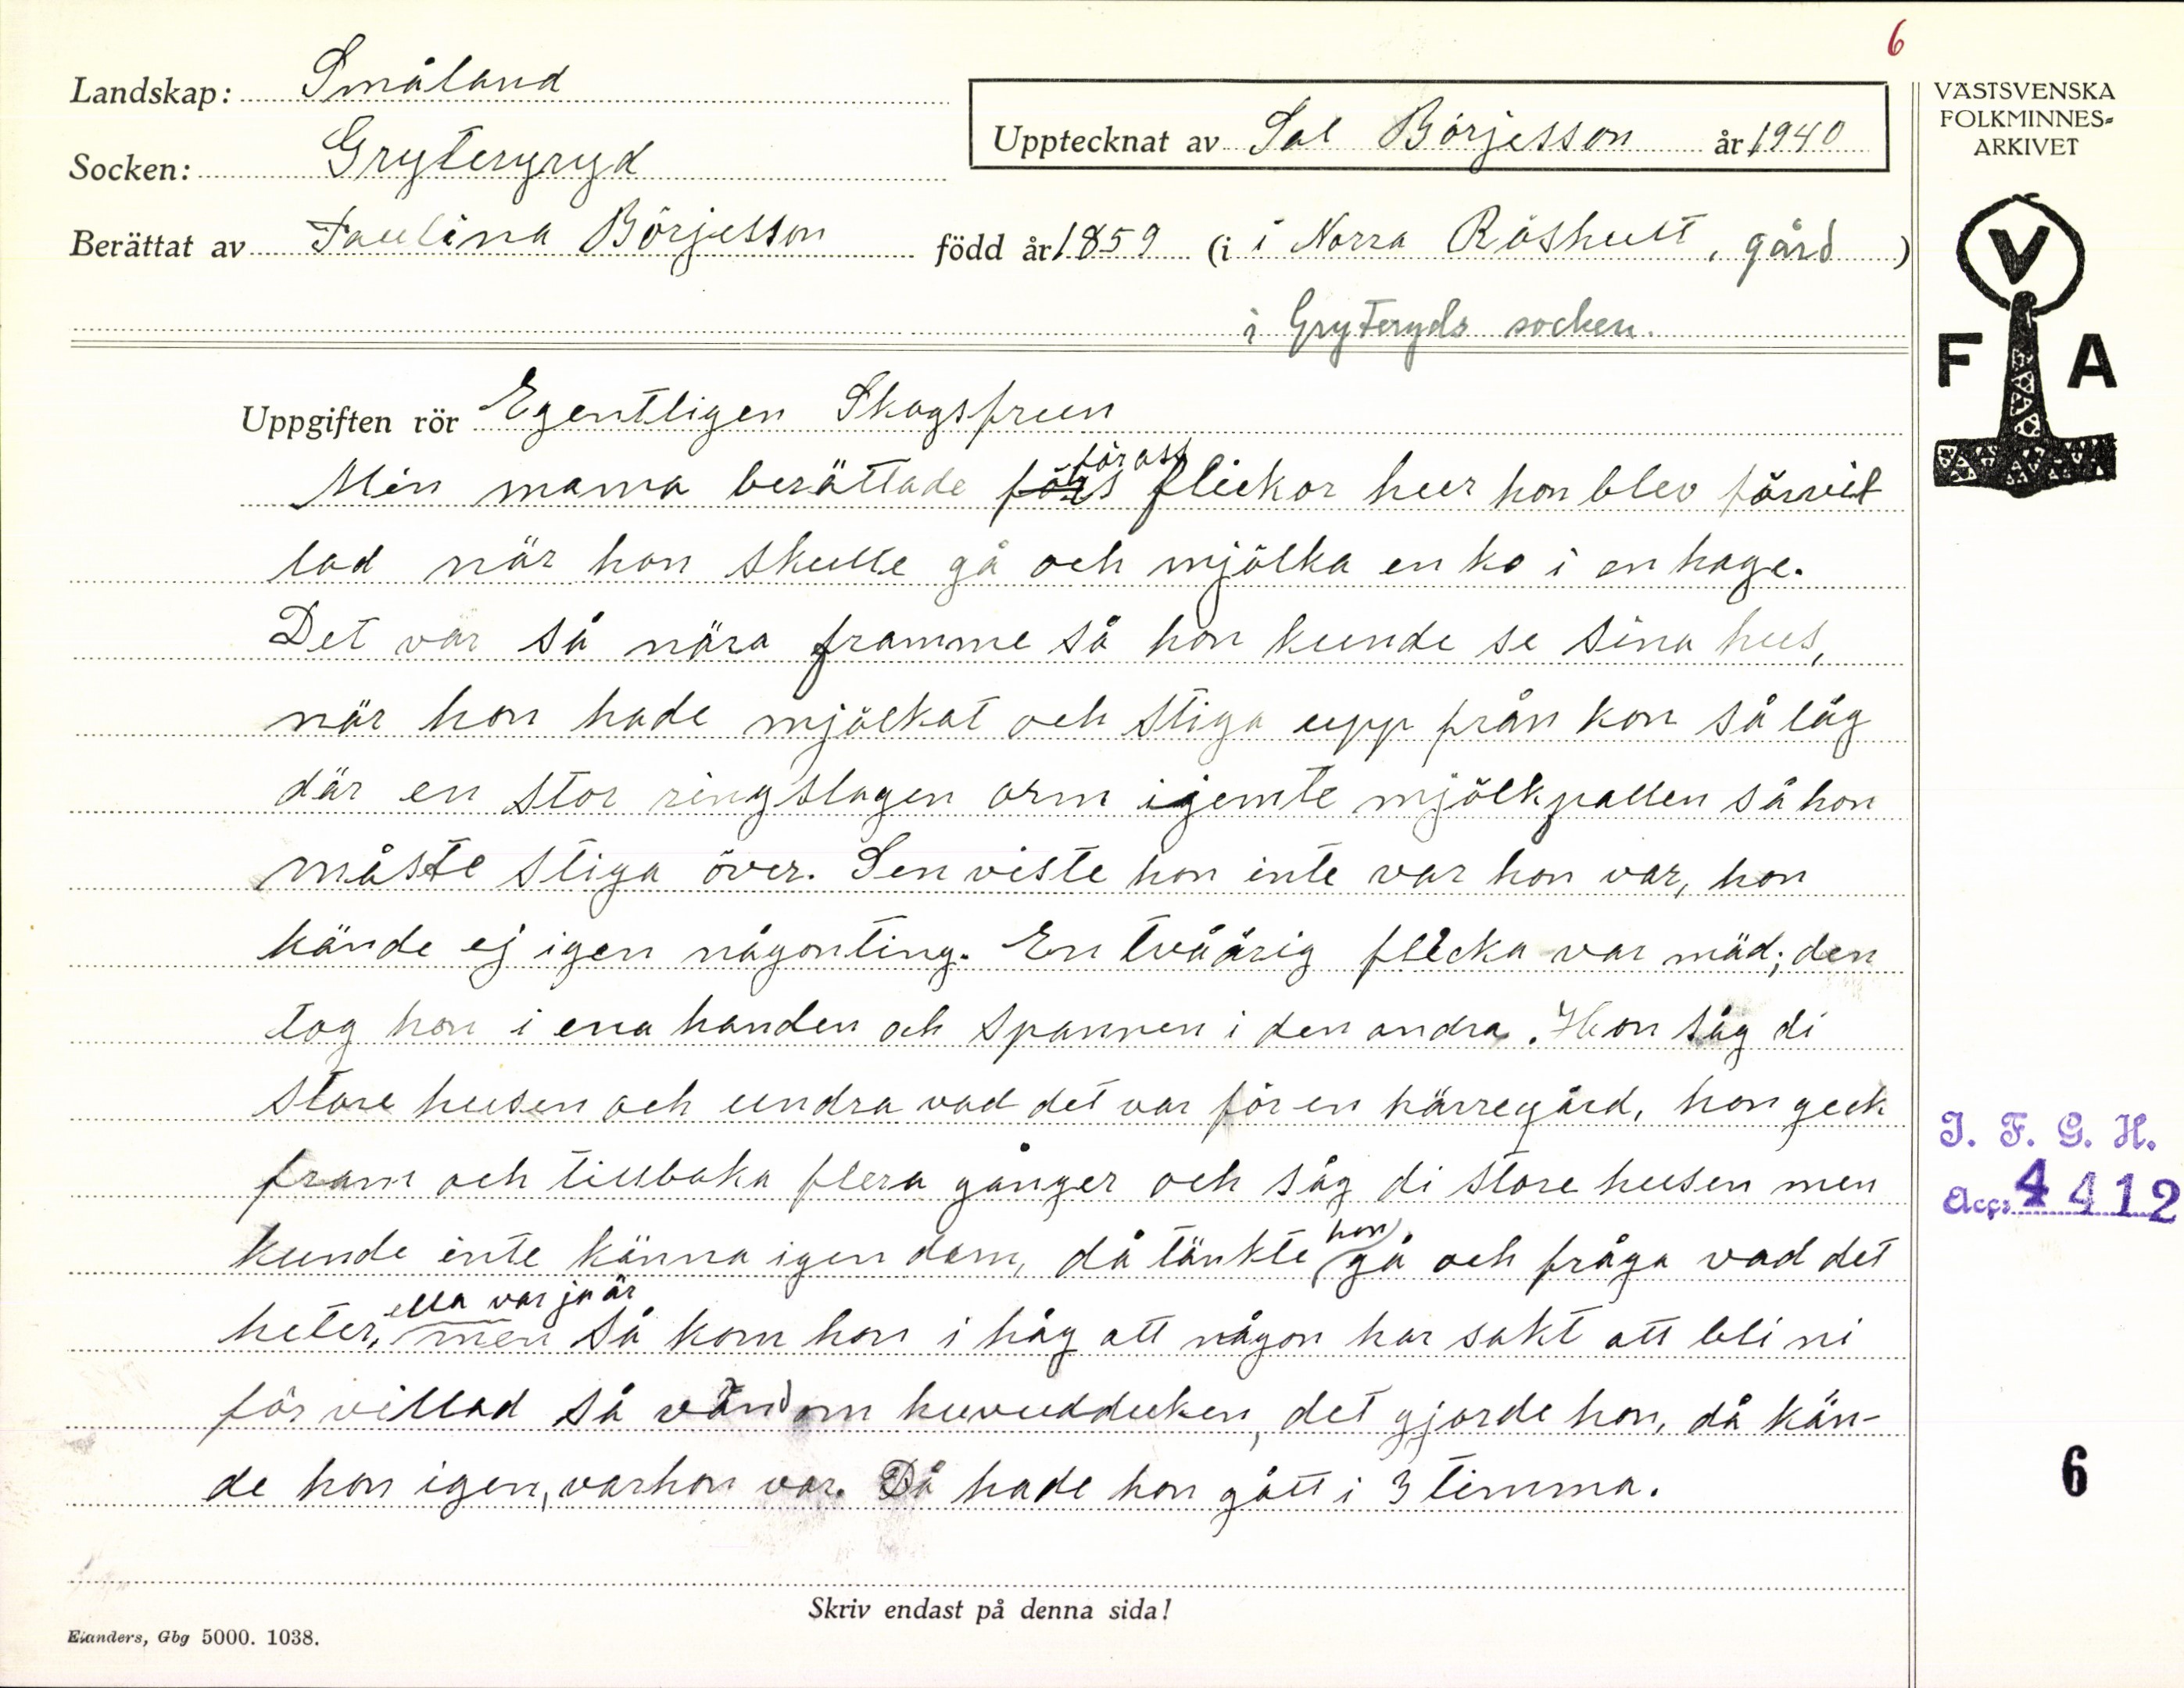 6
Landskap: Småland
Socken: Gryteryryd
Upptecknat av Sal Börjesson år 1940
Berättat av Paulina Börjesson född år 1859 (i i Norra Röshult, gård )
i Gryteryds socken.
VÄSTSVENSKA
FOLKMINNES=
ARKIVET
V
F A
Uppgiften rör Egentligen Skogsfrun
Min mama berättade för oss flickor hur hon blev förvil
lad när hon skulle gå och mjölka en ko i en hage.
Det var så nära framme så hon kunde se sina hus,
när hon hade mjölkat och stiga upp från kon så låg
där en stor ringslagen orm igemte mjölkpallen så hon
måste stiga över. Sen viste hon inte var hon var, hon
kände ej igen någonting. En tvåårig flicka var mäd; den
tog hon i ena handen och spannen i den andra. Hon såg di
store husen och undra vad det var för en härregård, hon geck
fram och tillbaka flera gånger och såg di store husen men
kunde inte känna igen dom, då tänkte hon gå och fråga vad det
heter, ella var ja är men så kom hon i håg att någon har sakt att bli ni
för villad så vänd om huvudduken, det gjorde hon, då kän-
de hon igen, varhon var. Då hade hon gått i 3 timma.
I. F. G. H.
Acc: 4412
6
Skriv endast på denna sida!
Elanders, Gbg 5000. 1038.